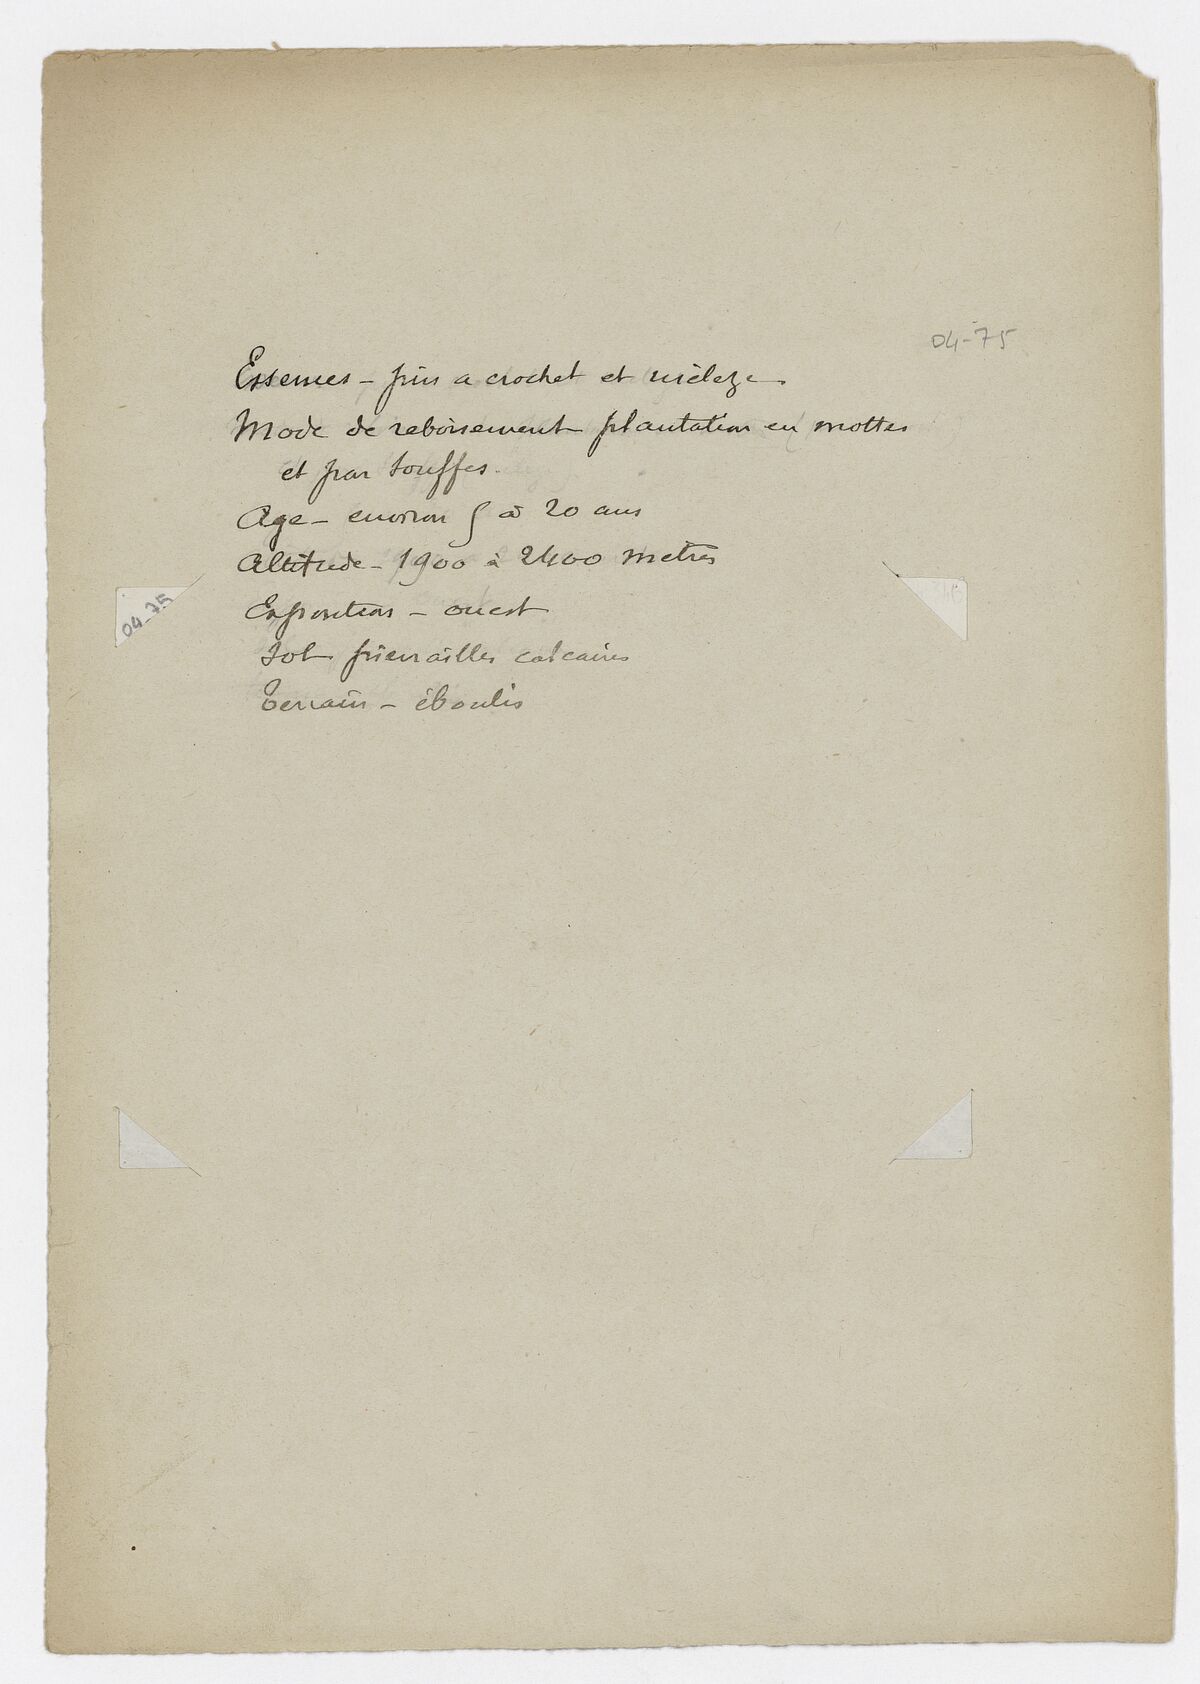 04-75
Essences - pin a crochet et mélèze.
Mode de reboisement plantation en mottes
et par touffes.
Age - environ 5 à 20 ans
Altitude - 1900 à 2400 metres
04-75
Exposition - ouest
Sol pierrailles calcaires
Terrain - éboulis